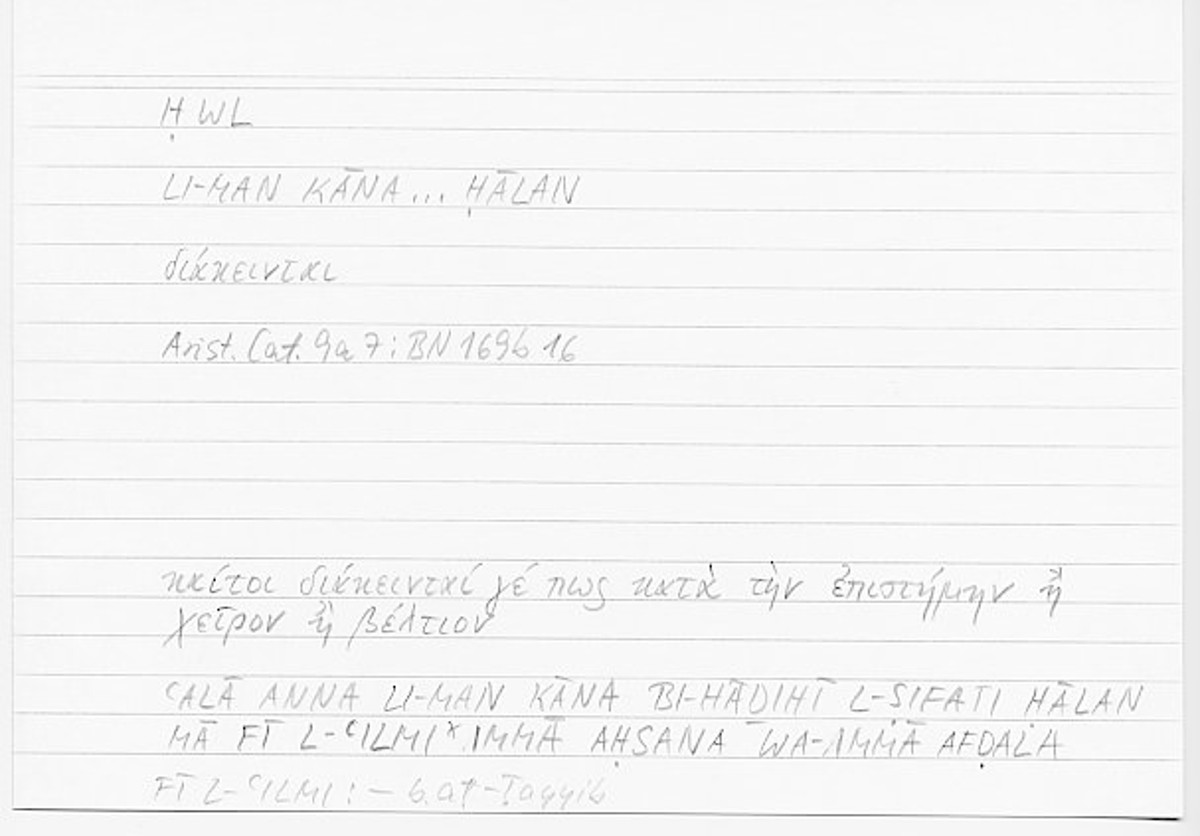 ḤWL
LI-MAN KĀNA... ḤĀLAN
διάκεινται
Arist. Cat. 9a 7: BN 169b 16
καίτοι διάκεινταί γέ πως κατὰ τὴν ἐπιστήμην ἢ
χεῖρον ἢ βέλτιον
ʿALĀ ANNA LI-MAN KĀNA BI-HĀḎIHĪ L-ṢIFATI ḤĀLAN
MĀ FĪ L-ʿILMI* IMMĀ AḤSANA WA-IMMĀ AFḌALA
FĪ L-ʿILMI: – b. aṭ-Ṭayyib